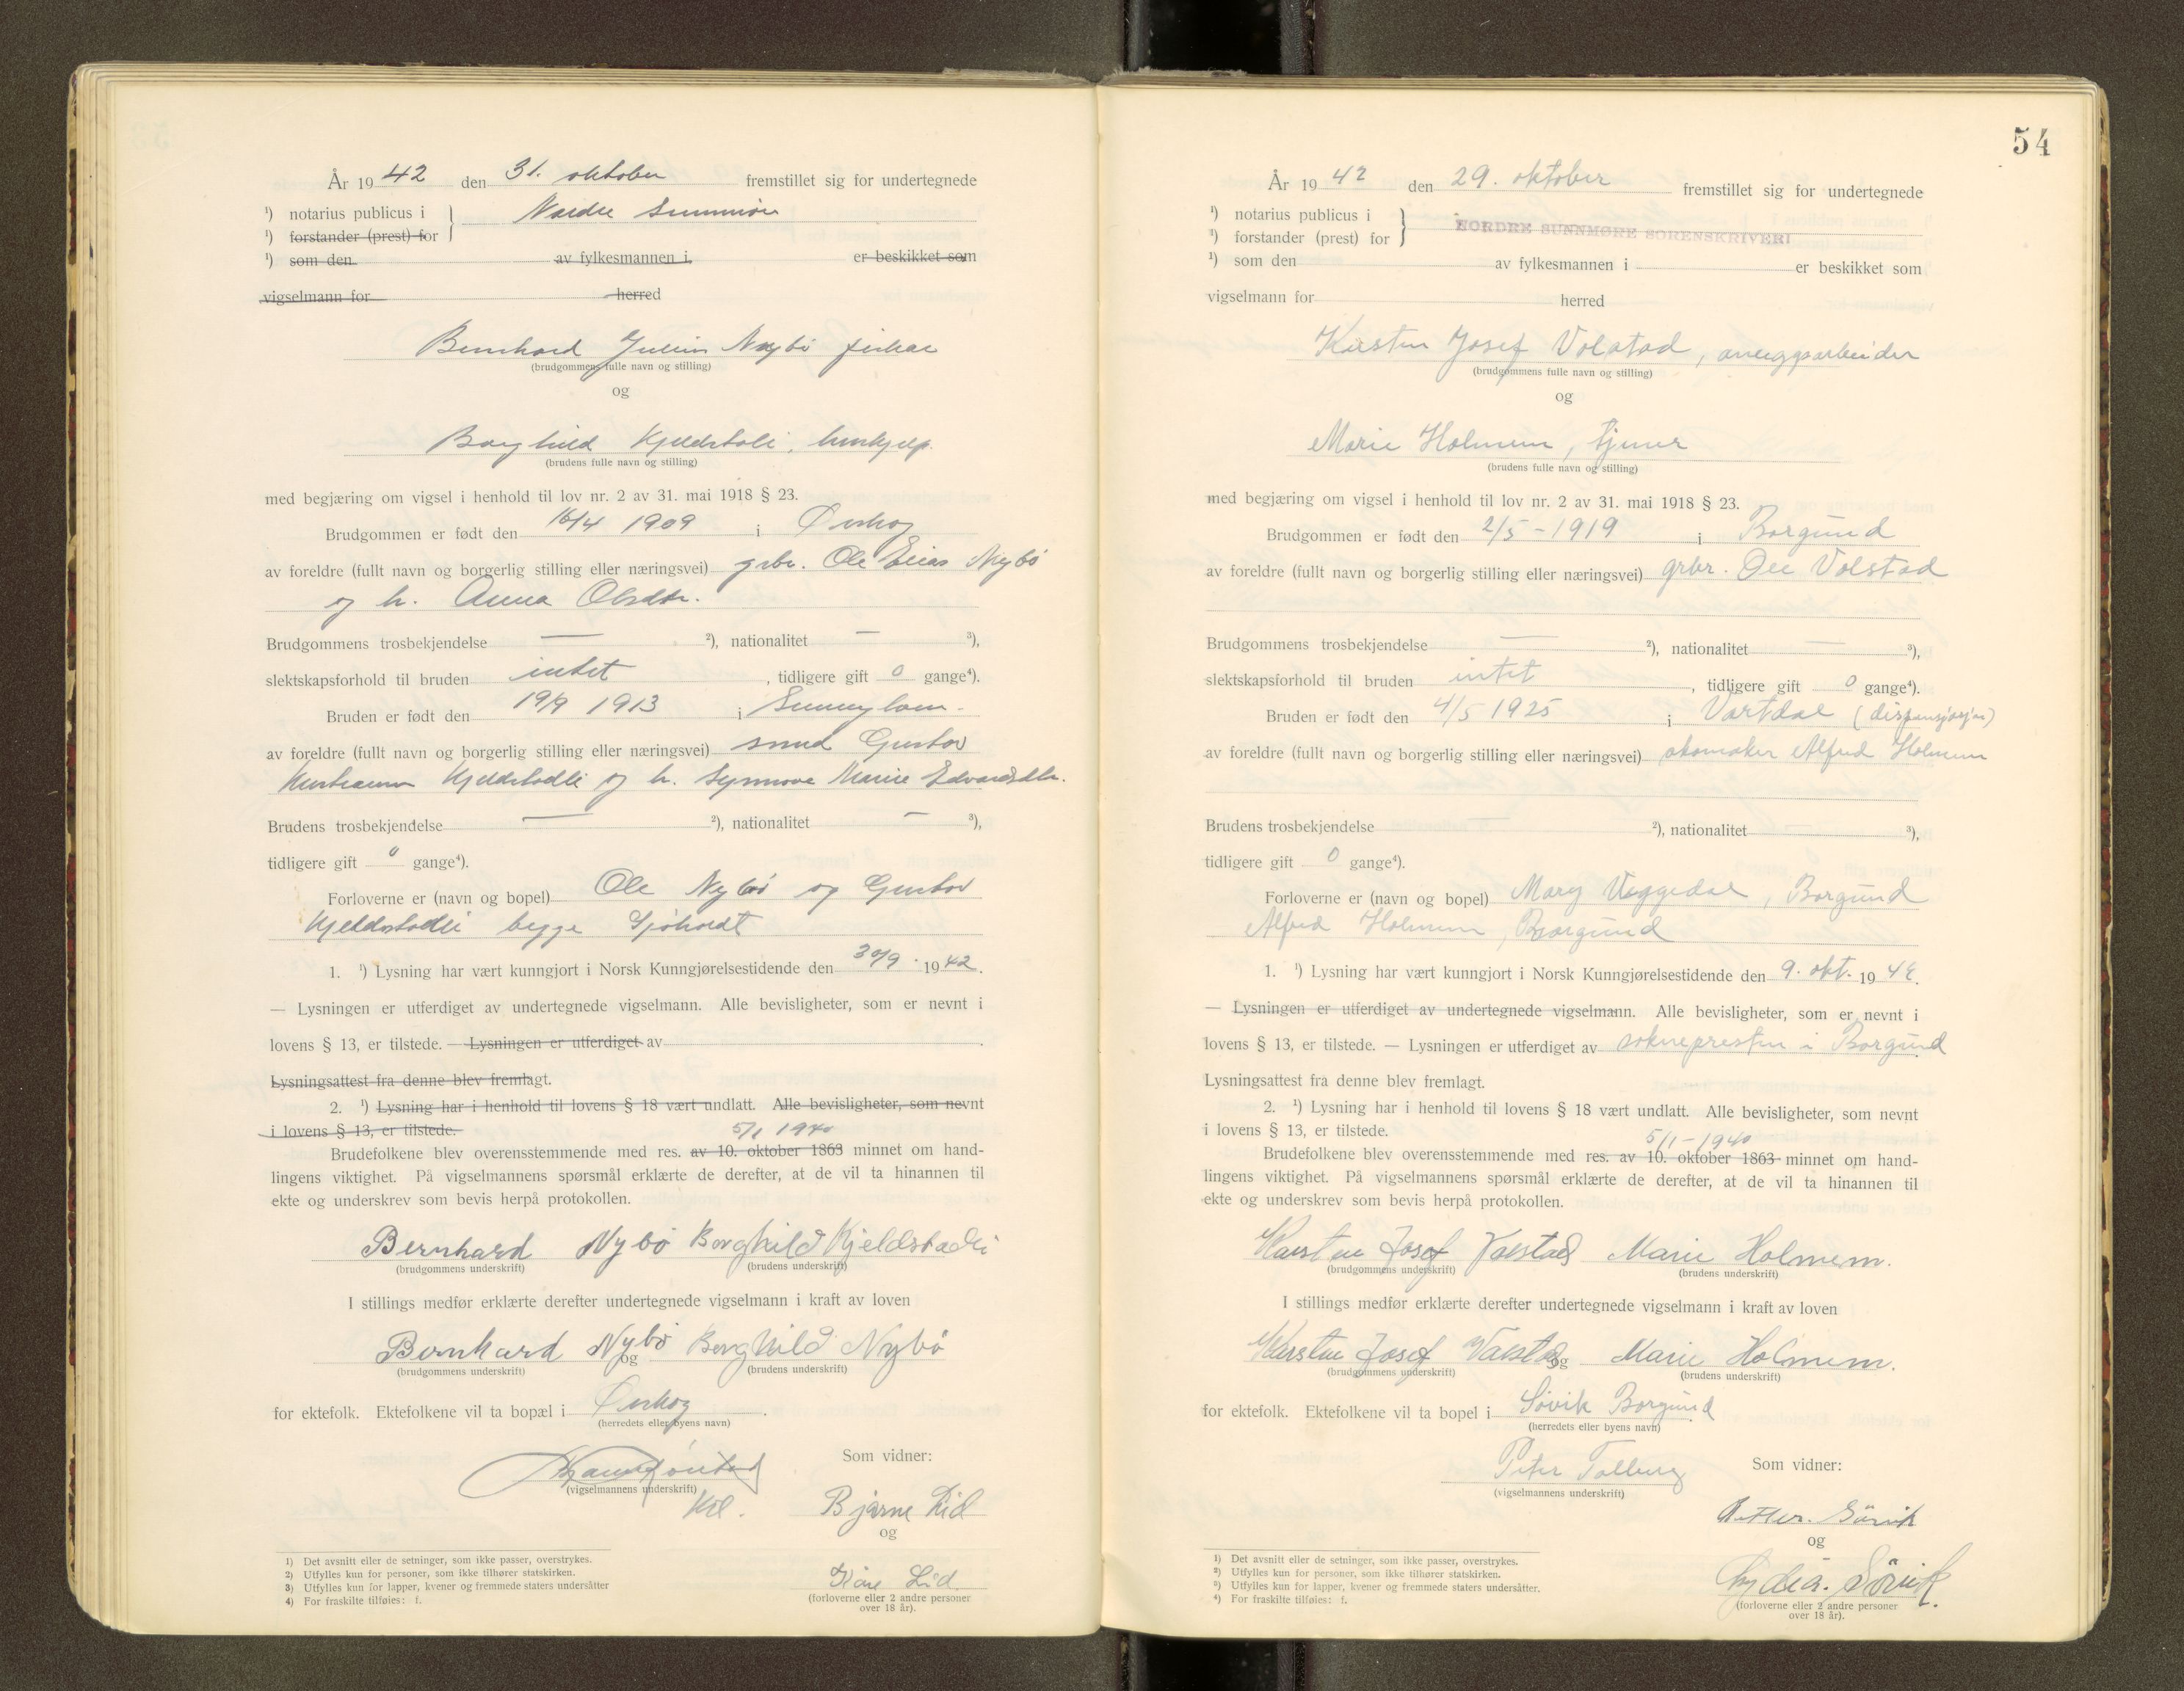 År 19 42 den 31. oktober fremstillet sig for undertegnede
¹) notarius publicus i } Nordre Sunnmöre
¹) forstander (prest) for
¹) som den av fylkesmannen i er beskikket som
vigselmann for herred
Bernhard Julius Nybö fisker
(brudgommens fulle navn og stilling)
og
Borghild Kjeldstali, hushjelp.
(brudens fulle navn og stilling)
med begjæring om vigsel i henhold til lov nr. 2 av 31. mai 1918 § 23.
Brudgommen er født den 16/4 1909 i Ørskog
av foreldre (fullt navn og borgerlig stilling eller næringsvei) grbr. Ole Elias Nybö
og h. Anna Olsdtr.
Brudgommens trosbekjendelse — ²), nationalitet — ³),
slektskapsforhold til bruden intet , tidligere gift 0 gange⁴).
Bruden er født den 19/9 1913 i Sunnylven.
av foreldre (fullt navn og borgerlig stilling eller næringsvei) smed Gustav
Kjeldstadli og h. Synnove Marie Edvardsdtr.
Brudens trosbekjendelse — ²), nationalitet — ³),
tidligere gift 0 gange⁴).
Forloverne er (navn og bopel) Ole Nybö og Gustav
Kjeldstadli begge Sjöholdt
1. ¹) Lysning har vært kunngjort i Norsk Kunngjørelsestidende den 30/9 . 19 42.
— Lysningen er utferdiget av undertegnede vigselmann. Alle bevisligheter, som er nevnt i
lovens § 13, er tilstede. — Lysningen er utferdiget av .
Lysningsattest fra denne blev fremlagt.
2. ¹) Lysning har i henhold til lovens § 18 vært undlatt. Alle bevisligheter, som nevnt
i lovens § 13, er tilstede. 5/1 1940
Brudefolkene blev overensstemmende med res. av 10. oktober 1863 minnet om hand-
lingens viktighet. På vigselmannens spørsmål erklærte de derefter, at de vil ta hinannen til
ekte og underskrev som bevis herpå protokollen.
Bernhard Nybö Borghild Kjeldstadli
(brudgommens underskrift) (brudens underskrift)
I stillings medfør erklærte derefter undertegnede vigselmann i kraft av loven
Bernhard Nybö og Borghild Nybö
(brudgommens underskrift) (brudens underskrift)
for ektefolk. Ektefolkene vil ta bopæl i Ørskog .
(herredets eller byens navn)
Som vidner:
(vigselmannens underskrift)
Bjarne Lid
og
Kåre Lid.
(forloverne eller 2 andre personer
over 18 år).
1) Det avsnitt eller de setninger, som ikke passer, overstrykes.
2) Utfylles kun for personer, som ikke tilhører statskirken.
3) Utfylles kun for lapper, kvener og fremmede staters undersåtter
4) For fraskilte tilføies: f.
54
År 19 42 den 29. oktober fremstillet sig for undertegnede
¹) notarius publicus i } NORDRE SUNNMØRE SORENSKRIVERI
¹) forstander (prest) for
¹) som den av fylkesmannen i er beskikket som
vigselmann for herred
Karsten Josef Volstad, anleggsarbeider
(brudgommens fulle navn og stilling)
og
Marie Holmem, tjener
(brudens fulle navn og stilling)
med begjæring om vigsel i henhold til lov nr. 2 av 31. mai 1918 § 23.
Brudgommen er født den 2/5 - 1919 i Borgund
av foreldre (fullt navn og borgerlig stilling eller næringsvei) grbr. Ole Volstad
Brudgommens trosbekjendelse — ²), nationalitet — ³),
slektskapsforhold til bruden intet , tidligere gift 0 gange⁴).
Bruden er født den 4/5 1925 i Vartdal (dispensasjon)
av foreldre (fullt navn og borgerlig stilling eller næringsvei) skomaker Alfred Holmem
Brudens trosbekjendelse — ²), nationalitet — ³),
tidligere gift 0 gange⁴).
Forloverne er (navn og bopel) Mary Veggedal, Borgund
Alfred Holmem, Borgund
1. ¹) Lysning har vært kunngjort i Norsk Kunngjørelsestidende den 9. okt. 19 42.
— Lysningen er utferdiget av undertegnede vigselmann. Alle bevisligheter, som er nevnt i
lovens § 13, er tilstede. — Lysningen er utferdiget av soknepresten i Borgund
Lysningsattest fra denne blev fremlagt.
2. ¹) Lysning har i henhold til lovens § 18 vært undlatt. Alle bevisligheter, som nevnt
i lovens § 13, er tilstede. 5/1 - 1940
Brudefolkene blev overensstemmende med res. av 10. oktober 1863 minnet om hand-
lingens viktighet. På vigselmannens spørsmål erklærte de derefter, at de vil ta hinannen til
ekte og underskrev som bevis herpå protokollen.
Karsten Josef Valstad Marie Holmem.
(brudgommens underskrift) (brudens underskrift)
I stillings medfør erklærte derefter undertegnede vigselmann i kraft av loven
Karsten Josef Valstad og Marie Holmem.
(brudgommens underskrift) (brudens underskrift)
for ektefolk. Ektefolkene vil ta bopel i Sövik Borgund
(herredets eller byens navn)
Peter Tallberg Som vidner:
(vigselmannens underskrift)
Petter. Sövik
og
Lydia. Sövik.
(forloverne eller 2 andre personer
over 18 år).
¹) Det avsnitt eller de setninger, som ikke passer, overstrykes.
²) Utfylles kun for personer, som ikke tilhører statskirken.
³) Utfylles kun for lapper, kvener og fremmede staters undersåtter.
⁴) For fraskilte tilføies: f.